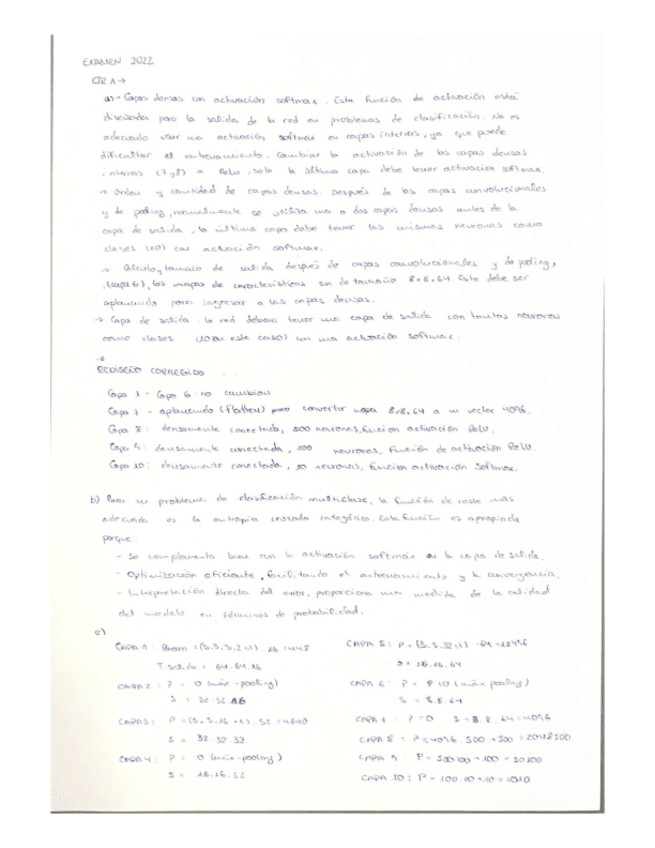 EXAMEN 2022
a) - Capas densas con activación softmax. Esta función de activación está
diseñada para la salida de la red en problemas de clasificación. No es
adecuado usar una activación softmax en capas internas, ya que puede
dificultar el entrenamiento. Cambiar la activación de las capas densas
internas (7 y 8) a Relu, solo la última capa debe tener activación softmax.
→ Orden y cantidad de capas densas. Después de las capas convolucionales
y de pooling, normalmente se utiliza una o dos capas densas antes de la
capa de salida, la última capa debe tener las mismas neuronas como
clases (10) con activación softmax.
→ Cálculo, tamaño de salida después de capas convolucionales y de pooling,
(capa 6), los mapas de características son de tamaño 8x8x64. Esto debe ser
aplanando para ingresar a las capas densas.
→ Capa de salida. la red deberá tener una capa de salida con tantas neuronas
como clases (10 en este caso) con una activación softmax.
→
REDISEÑO CORREGIDO
Capa 1 - Capa 6: no cambian
Capa 7 - aplanando (Flatten) para convertir mapa 8x8x64 a un vector 4096.
Capa 8: densamente conectada, 500 neuronas, funcion activación Relu.
Capa 9: densamente conectada, 100 neuronas, función de activación ReLu.
Capa 10: densamente conectada, 10 neuronas, funcion activación Softmax.
b) Para un problema de clasificación multiclase, la función de coste más
adecuada es la entropía cruzada categórica. Esta función es apropiada
porque:
- Se complementa bien con la activación softmax en la capa de salida.
- Optimización eficiente, facilitando el entrenamiento y la convergencia.
- Interpretación directa del error, proporciona una medida de la calidad
del modelo en términos de probabilidad.
c)
CAPA 1:
T. salida = 64.64.16
CAPA 2: P = 0 (máx-pooling)
S = 32.32.16
CAPA 3: P = (3.3.16+1).32 = 4640
S = 32.32.32
CAPA 4: P = 0 (máx-pooling)
S = 16.16.32
CAPA 5: P = (3.3.32+1).64 = 18496
S = 16.16.64
CAPA 6: P = 0 (máx pooling)
S = 8.8.64
CAPA 7: P = 0 S = 8.8.64 = 4096
CAPA 8: P = 4096.500+500 = 2048500
CAPA 9: P = 500.100+100 = 50100
CAPA 10: P = 100.10+10 = 1010